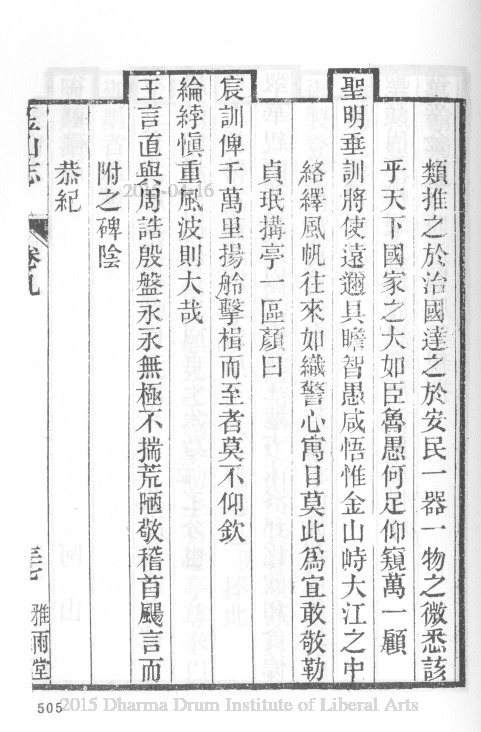 類推之於治國達之於安民一器一物之微悉該
乎天下國家之大如臣魯愚何足仰窺萬一顧
聖明垂訓將使遠邇具瞻智愚咸悟惟金山峙大江之中
絡繹風帆往來如織警心寓目莫此爲宜敢敬勒
貞珉搆亭一區顏曰
宸訓俾千萬里揚舲擊楫而至者莫不仰欽
綸綍愼重風波則大哉
王言直與周誥殷盤永永無極不揣荒陋敬稽首颺言而
附之碑陰
恭紀
金山志
卷九
雅雨堂
2015-04-16
505
2015 Dharma Drum Institute of Liberal Arts